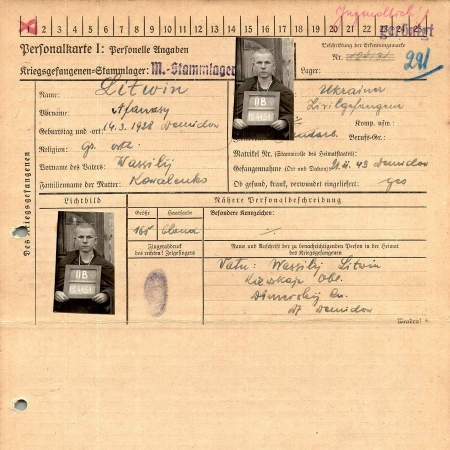 1 2 3 4 5 6 7 8 9 10 11 12 13 14 15 16 17 18 19 20 21 22 23 24 25
Jugendlich
Personalkarte I: Personelle Angaben
Beschriftung der Erkennungsmarke
Kriegsgefangenen-Stammlager: M.-Stammlager
Lager:
291
Des Kriegsgefangenen
Name: Litwin
Ukrainer
Vorname: Afanasy
Zivilgefangen
Geburtstag und -ort: 14.3.1928 Demidow
Berufs-Gr.:
Religion: Gr. orth.
Matrikel Nr. (Stammrolle des Heimatstaates):
Vorname des Vaters: Wassilij
Gefangennahme (Ort und Datum): 43 Demidow
Familienname der Mutter: Kowalenko
Ob gesund, krank, verwundet eingeliefert:
Lichtbild
Nähere Personalbeschreibung
Größe
Haarfarbe
Besondere Kennzeichen:
165
blond
Fingerabdruck
des rechten! Zeigefingers
Name und Anschrift der zu benachrichtigenden Person in der Heimat
des Kriegsgefangenen
Vater: Wassilij Litwin
Kiewskaja Obl.
Dimerskij
Demidow
Wenden!